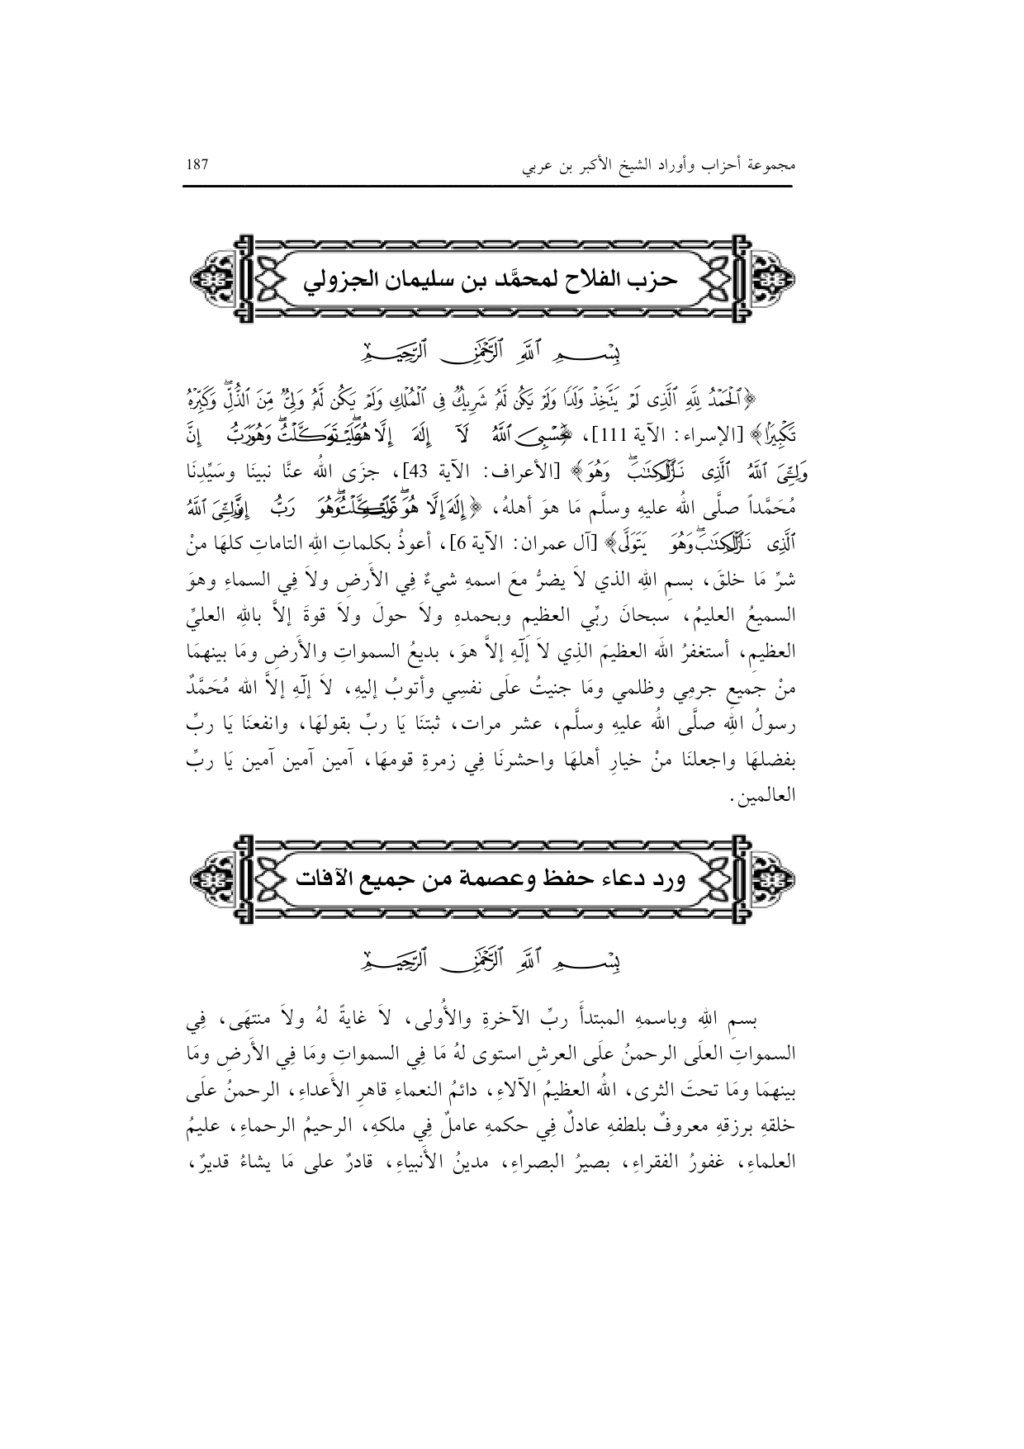 مجموعة أحزاب وأوراد الشيخ الأكبر بن عربي 187
حزب الفلاح لمحمَّد بن سليمان الجزولي
بِسْمِ ٱللَّهِ ٱلرَّحْمَٰنِ ٱلرَّحِيمِ
﴿ٱلْحَمْدُ لِلَّهِ ٱلَّذِى لَمْ يَتَّخِذْ وَلَدًا وَلَمْ يَكُن لَّهُۥ شَرِيكٌ فِى ٱلْمُلْكِ وَلَمْ يَكُن لَّهُۥ وَلِىٌّ مِّنَ ٱلذُّلِّ ۖ وَكَبِّرْهُ
تَكْبِيرًا﴾ [الإسراء: الآية 111]، حَسْبِىَ ٱللَّهُ لَآ إِلَٰهَ إِلَّا هُوَ عَلَيْهِ تَوَكَّلْتُ ۖ وَهُوَ رَبُّ إِنَّ
وَلِـِّۧىَ ٱللَّهُ ٱلَّذِى نَزَّلَ ٱلْكِتَٰبَ ۖ وَهُوَ﴾ [الأعراف: الآية 43]، جزَى اللهُ عنَّا نبينَا وسَيِّدِنَا
مُحَمَّداً صلَّى اللهُ عليهِ وسلَّم مَا هوَ أهلهُ، ﴿إِلَٰهَ إِلَّا هُوَ ۖ عَلَيْهِ تَوَكَّلْتُ ۖ وَهُوَ رَبُّ إِنَّ وَلِـِّۧىَ ٱللَّهُ
ٱلَّذِى نَزَّلَ ٱلْكِتَٰبَ ۖ وَهُوَ يَتَوَلَّى﴾ [آل عمران: الآية 6]، أعوذُ بكلماتِ اللهِ التاماتِ كلهَا منْ
شرِّ مَا خلقَ، بسمِ اللهِ الذي لاَ يضرُّ معَ اسمهِ شيءٌ فِي الأَرضِ ولاَ فِي السماءِ وهوَ
السميعُ العليمُ، سبحانَ ربِّي العظيمِ وبحمدهِ ولاَ حولَ ولاَ قوةَ إلاَّ باللهِ العليِّ
العظيمِ، أستغفرُ اللهَ العظيمَ الذِي لاَ إلَهَ إلاَّ هوَ، بديعُ السمواتِ والأَرضِ ومَا بينهمَا
منْ جميعِ جرمِي وظلمي ومَا جنيتُ علَى نفسِي وأتوبُ إليهِ، لاَ إلَهَ إلاَّ الله مُحَمَّدٌ
رسولُ اللهِ صلَّى اللهُ عليهِ وسلَّم، عشر مرات، ثبتنَا يَا ربِّ بقولهَا، وانفعنَا يَا ربِّ
بفضلهَا واجعلنَا منْ خيارِ أهلهَا واحشرنَا فِي زمرةِ قومهَا، آمين آمين آمين يَا ربِّ
العالمين.
ورد دعاء حفظ وعصمة من جميع الآفات
بِسْمِ ٱللَّهِ ٱلرَّحْمَٰنِ ٱلرَّحِيمِ
بسمِ اللهِ وباسمهِ المبتدأَ ربِّ الآخرةِ والأُولى، لاَ غايةً لهُ ولاَ منتهَى، فِي
السمواتِ العلَى الرحمنُ علَى العرشِ استوى لهُ مَا فِي السمواتِ ومَا فِي الأَرضِ ومَا
بينهمَا ومَا تحتَ الثرى، اللهُ العظيمُ الآلاءِ، دائمُ النعماءِ قاهرِ الأَعداءِ، الرحمنُ علَى
خلقهِ برزقهِ معروفٌ بلطفهِ عادلٌ فِي حكمهِ عاملٌ فِي ملكهِ، الرحيمُ الرحماءِ، عليمُ
العلماءِ، غفورُ الفقراءِ، بصيرُ البصراءِ، مدينُ الأَنبياءِ، قادرٌ على مَا يشاءُ قديرٌ،